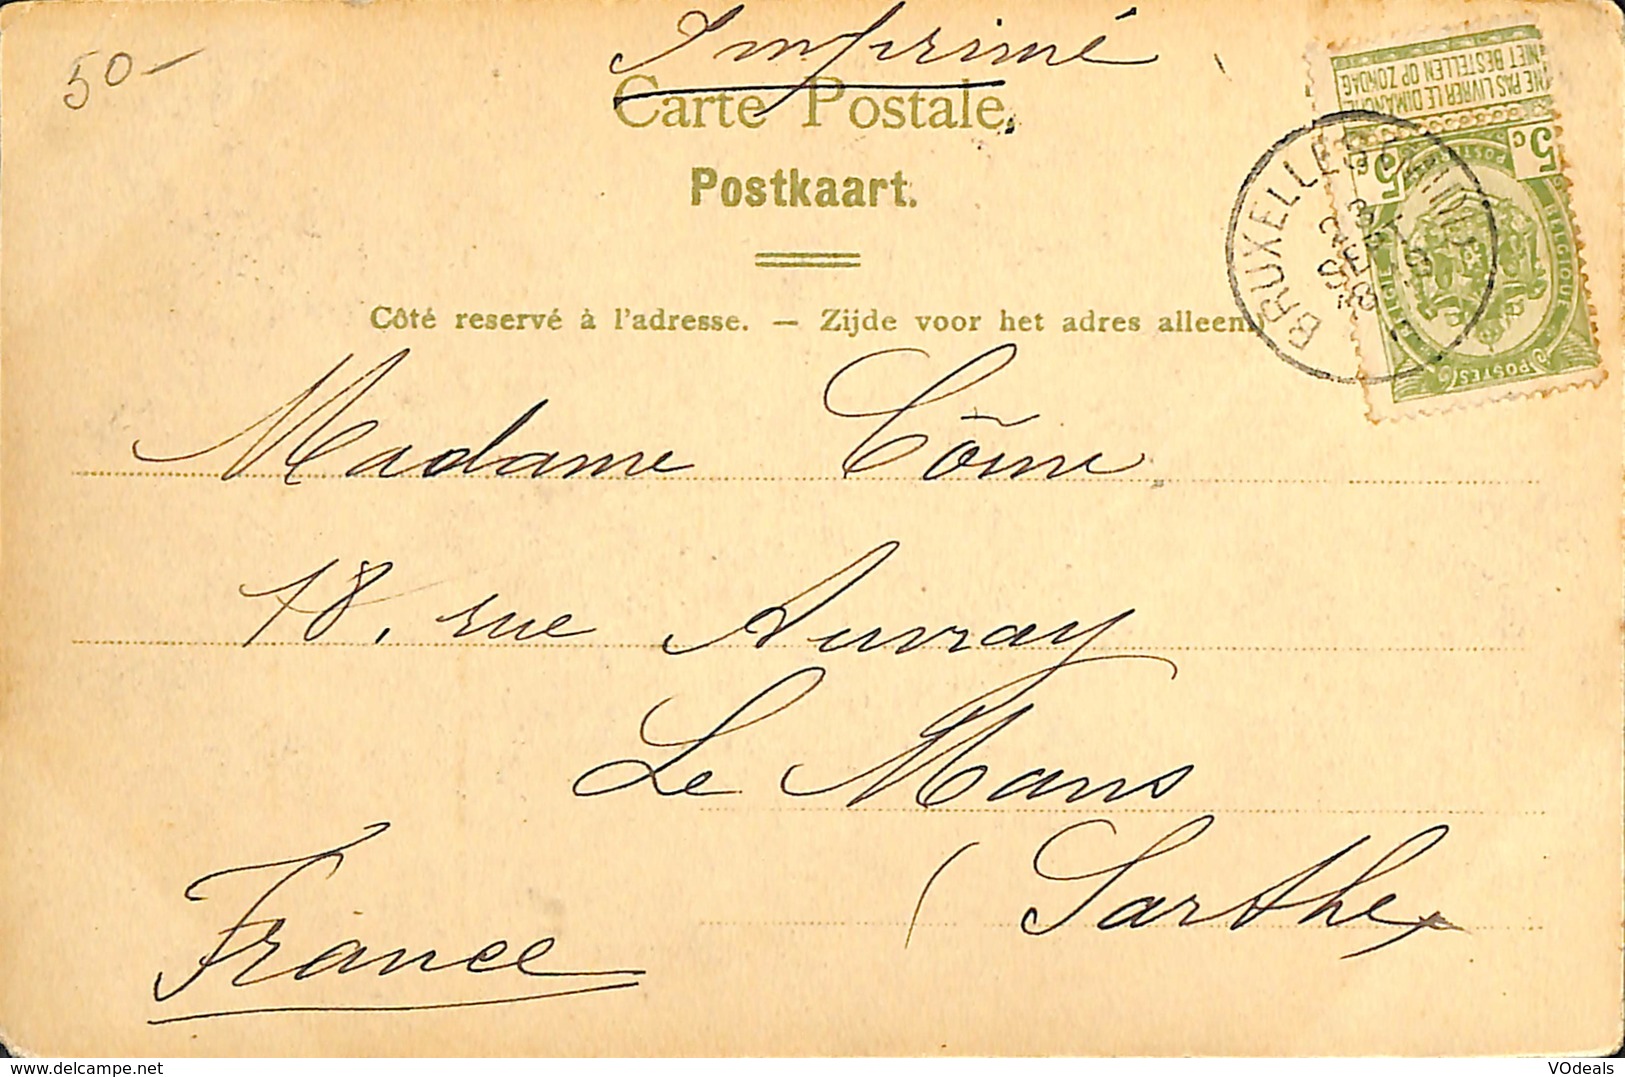 50-
Imprimé
Carte Postale.
Postkaart.
Côté reservé à l'adresse. — Zijde voor het adres alleen.
NE PAS LIVRER LE DIMANCHE
NIET BESTELLEN OP ZONDAG
5c 5c
POSTES
BELGIQUE
BELGIE
POSTES
BRUXELLES
SEPT
Madame Côme
18, rue Auvray
Le Mans
(Sarthe)
France
www.delcampe.net
VOdeals